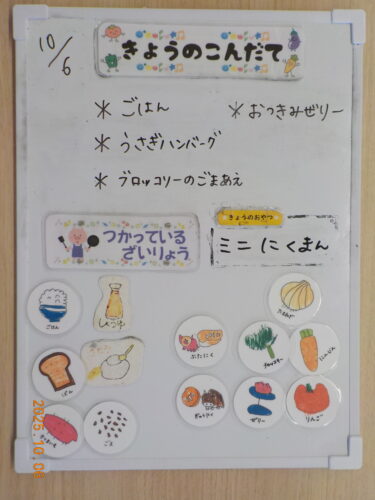 10/6
きょうのこんだて
＊ごはん
＊おつきみゼリー
＊うさぎハンバーグ
＊ブロッコリーのごまあえ
つかっている
ざいりょう
きょうのおやつ
ミニにくまん
ごはん
しょうゆ
ぱん
ごま
ぶたにく
ブロッコリー
にんじん
ゼリー
りんご
2025.10.06